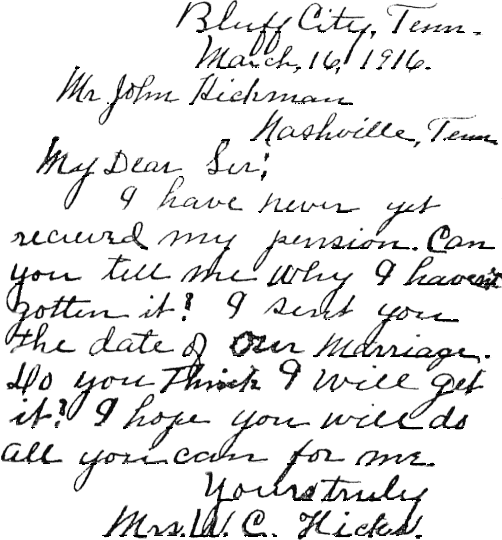 Bluff City, Tenn.
March, 16, 1916.
Mr John Hickman
Nashville, Tenn
My Dear Sir;
I have never yet
recieved my pension. Can
you tell me why I haven't
gotten it? I sent you
the date of our marriage.
Do you think I will get
it? I hope you will do
all you can for me.
Yours truly
Mrs. W. C. Hicks.